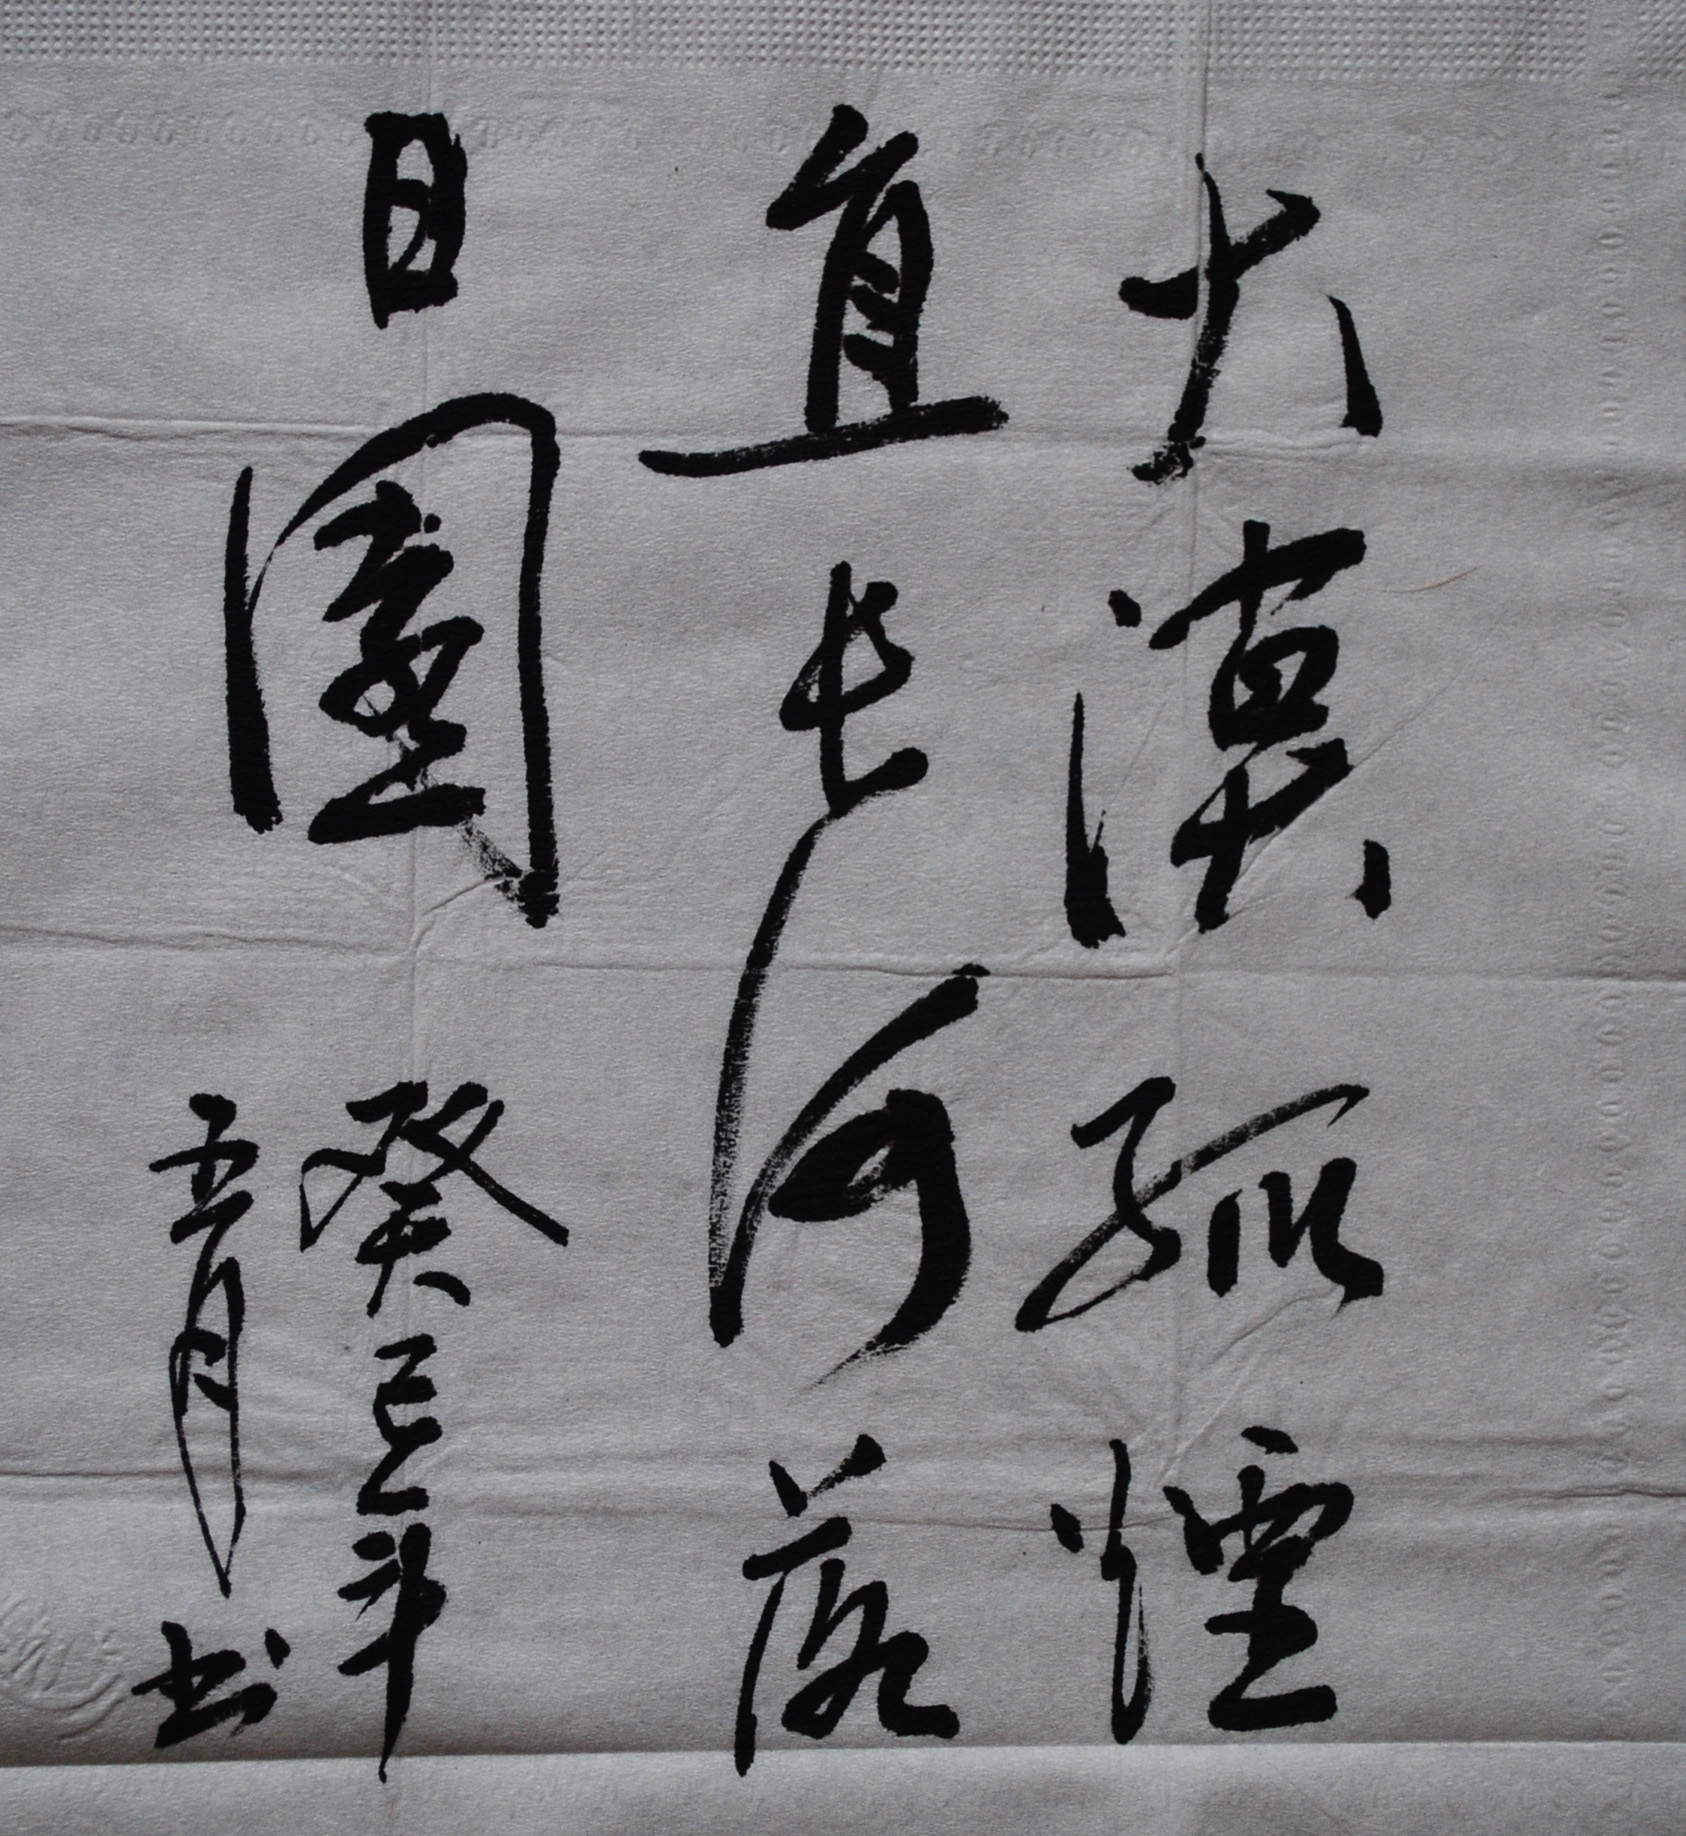 大漠孤煙
直長河落
日圓
癸巳年
五月书